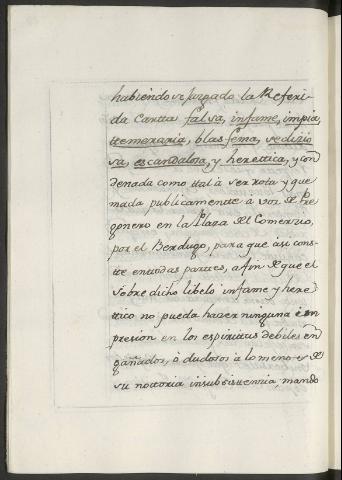 habiendose Juzgado la Referi-
da Cartta falsa, infame, impia,
ttemeraria, blasfema, sedizio
sa, escandalosa, y herettica, y con
denada como ttal à ser rota y que
mada publicamentte à voz de Pre
gonero en la Plaza del Comerzio,
por el Berdugo, para que asi cons-
tte en ttodas parttes, afin de que el
sobre dicho libelo infame y here
ttico no pueda hazer ninguna im
presion en los espirittus debiles en
gañados, ò dudosos a lo menos de
su nottoria insubsisttenzia, mando